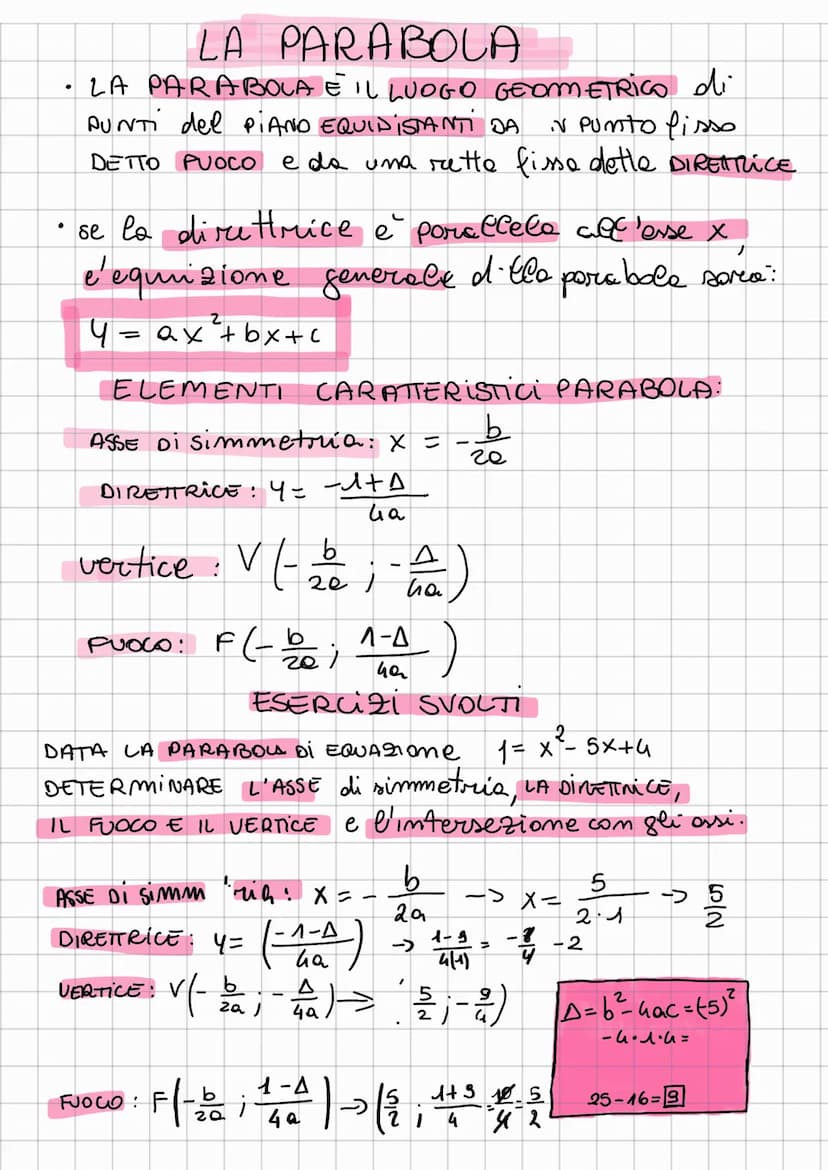 LA PARABOLA
• LA PARABOLA È IL LUOGO GEOMETRICO di
PUNTi del PiANO EQUIDISTANTI DA N PUMTO fisso
DETTO FUOCO e da una retta fissa detta DIRETTRICE
• se la direttrice e` parallela all'asse x,
l'equazione generale della parabola sarà:
y = ax²+bx+c
ELEMENTI CARATTERISTICI PARABOLA:
ASSE Di simmetria: x = - b/2a
DIRETTRICE: y = -1+Δ/4a
vertice: V (- b/2a ; - Δ/4a)
FUOCO: F (- b/2a ; 1-Δ/4a)
ESERCIZI SVOLTI
DATA LA PARABOLA Di EQUAZIONE y= x²- 5x+4
DETERMINARE L'ASSE di simmetria, LA DIRETTRICE,
IL FUOCO E IL VERTICE e l'intersezione con gli assi.
ASSE Di Simm ria: x = - b/2a -> x= 5/2·1 -> 5/2
DIRETTRICE: y= (-1-Δ/4a) -> 1-9/4(1) = -8/4 -2
VERTICE: V(- b/2a ; - Δ/4a) => 5/2 ; - 9/4)
Δ=b²-4ac=(-5)²
-4·1·4=
25-16=9
FUOCO: F(- b/2a ; 1-Δ/4a) -> (5/2 ; 1+9/4 = 10/4 = 5/2